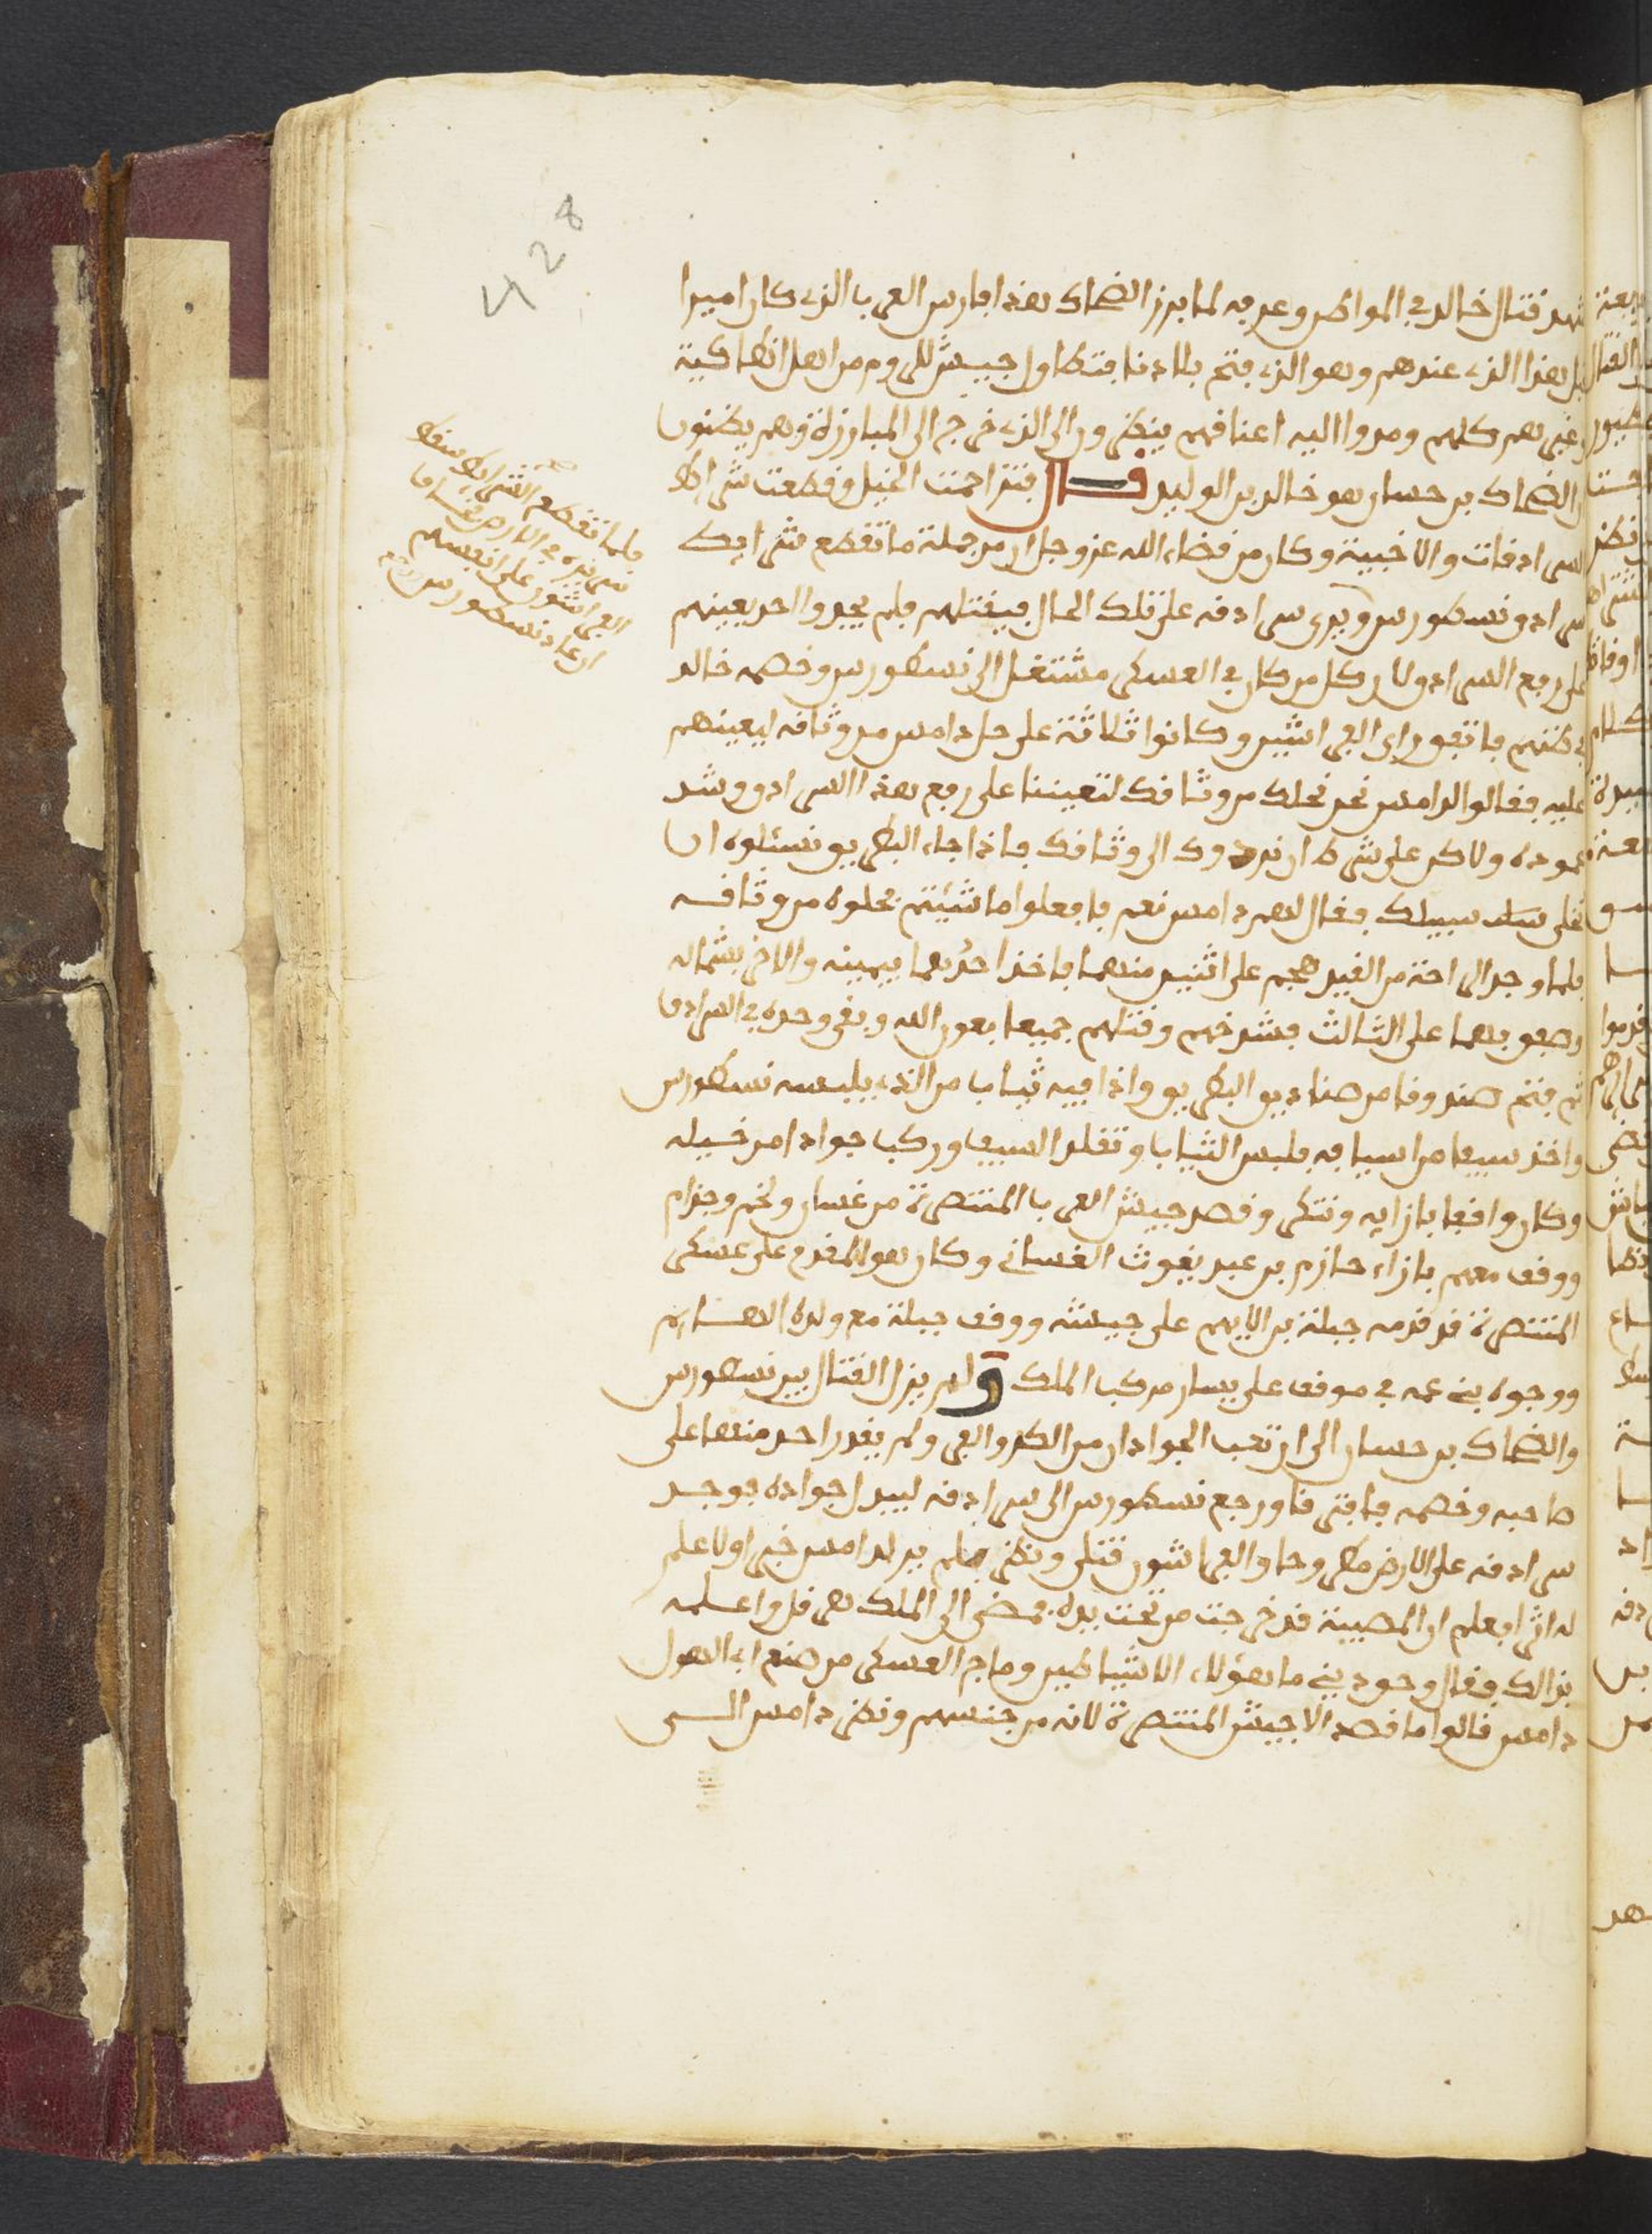 شهد قتال خالد في المواطن وعرفه لما برز الضحاك هذا فارس العرب الذي كان اميرا
قبل هذا الذي عندهم وهو الذي فتح بلادنا فتطاول جيش الروم من اهل انطاكية
وغيرهم كلهم ومدوا اليه اعناقهم ينظرون الى الذي خرج الى المبارزة وهم يظنون
ان الضحاك بن حسان هو خالد بن الوليد قال فتزاحمت الخيل وقطعت شرائط
السرادقات والاخبية وكان من قضاء الله عز وجل ان من جملة ما تقطع شرائط
سرادق نسطورس ويرى سرادقه على تلك الحال فيقتلهم فلم يجدوا احد يعينهم
على رفع السرادق لان كل من كان في العسكر مشتغل الى نسطورس وخصمه خالد
في ظنهم فاتفق راي الفراشين وكانوا ثلاثة على حل دامس من وثاقه ليعينهم
عليه فقالوا لدامس نحن نحلك من وثاقك لتعيننا على رفع هذا السرادق وشد
عموده ولاكن على شرط ان نردوك الى وثاقك فاذا جاء البطريق نسئلوه ان
يخلى سبيلك فقال لهم دامس نعم فافعلوا ما شئتم فحلوه من وثاقه
فلما وجد الراحة من القيد هجم على اثنين منهما فاخذ احدهما بيمينه والاخر بشماله
وصفق بهما على الثالث فشدخهم وقتلهم جميعا بعون الله وبقى وحده في السرادق
ثم فتح صندوقا من صناديق البطريق واذا فيه ثياب من الذي يلبسه نسطورس
واخذ سيفا من اسيافه فلبس الثياب وتقلد السيف وركب جوادا من خيله
وكان واقفا بازايه وتنكر وقصد جيش العرب المتنصرة من غسان ولخم وجذام
ووقف معهم بازاء حازم بن عبد يغوث الغساني وكان هو المقدم على عسكر
المتنصرة قد قدمه جبلة بن الايهم على جيشه ووقف جبلة مع ولده الايهم
ووجوه بني عمه في موقف على يسار مركب الملك ولم يزل القتال بين نسطورس
والضحاك بن حسان الى ان تعب الجوادان من الكر والفر ولم يقدر احد منهما على
صاحبه وخصمه فافترقا ورجع نسطورس الى سرادقه ليبدل جواده فوجد
سرادقه على الارض مطروحا والفراشون قتلى ونظر فلم ير لدامس خبرا ولا علم
له اثرا فعلم ان المصيبة قد خرجت من تحت يده فمضى الى الملك هرقل واعلمه
بذالك فقال وحق ديني ما هؤلاء الا شياطين وماج العسكر من صنع ابي الهول
دامس قالوا ما قصد الا جيش المتنصرة لانه من جنسهم ونظر دامس الى
فلما تقطع الشرائط سقط
سرادقه في الارض فخاف
الفراشون على انفسهم
ان عاد نسطورس
428